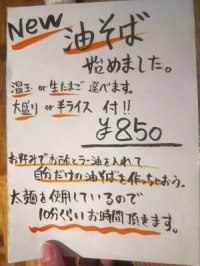 New 油そば
始めました。
温玉 or 生たまご 選べます。
大盛り or 半ライス 付!!
¥850
お好みでお酢とラー油を入れて
自分だけの油そばを作っちゃおう。
太麺を使用しているので
10分ぐらいお時間頂きます。